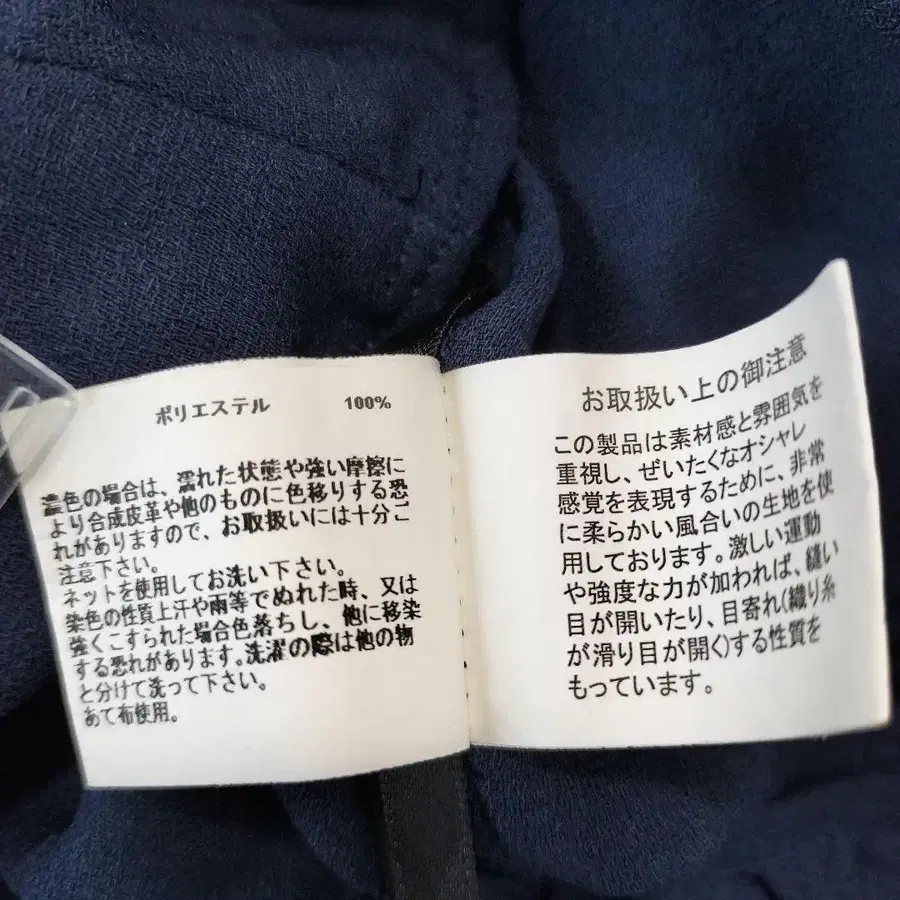 ポリエステル 100%
濃色の場合は、濡れた状態や強い摩擦に
より合成皮革や他のものに色移りする恐
れがありますので、お取扱いには十分ご
注意下さい。
ネットを使用してお洗い下さい。
染色の性質上汗や雨等でぬれた時、又は
強くこすられた場合色落ちし、他に移染
する恐れがあります。洗濯の際は他の物
と分けて洗って下さい。
あて布使用。
お取扱い上の御注意
この製品は素材感と雰囲気を
重視し、ぜいたくなオシャレ
感覚を表現するために、非常
に柔らかい風合いの生地を使
用しております。激しい運動
や強度な力が加われば、縫い
目が開いたり、目寄れ(織り糸
が滑り目が開く)する性質を
もっています。